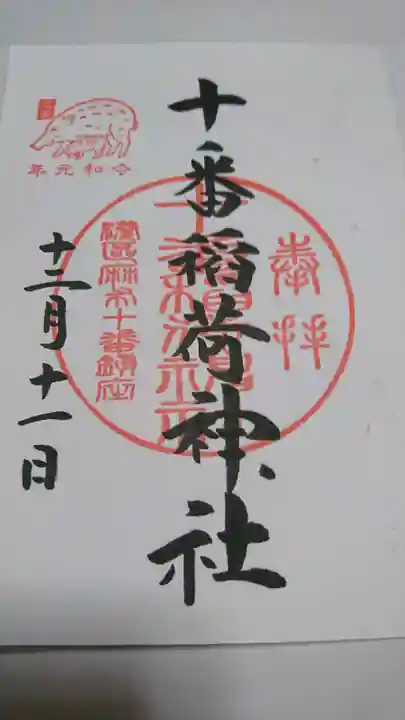 奉拝
十番稲荷神社
港区麻布十番鎮座
令和元年
十二月十一日